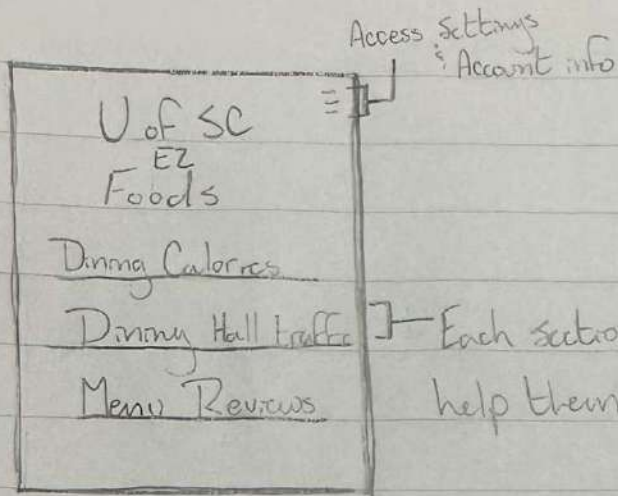 Access Settings
& Account info
U of SC
EZ
Foods
Dining Calories
Dining Hall traffic
Each sectio
Menu Reviews
help them